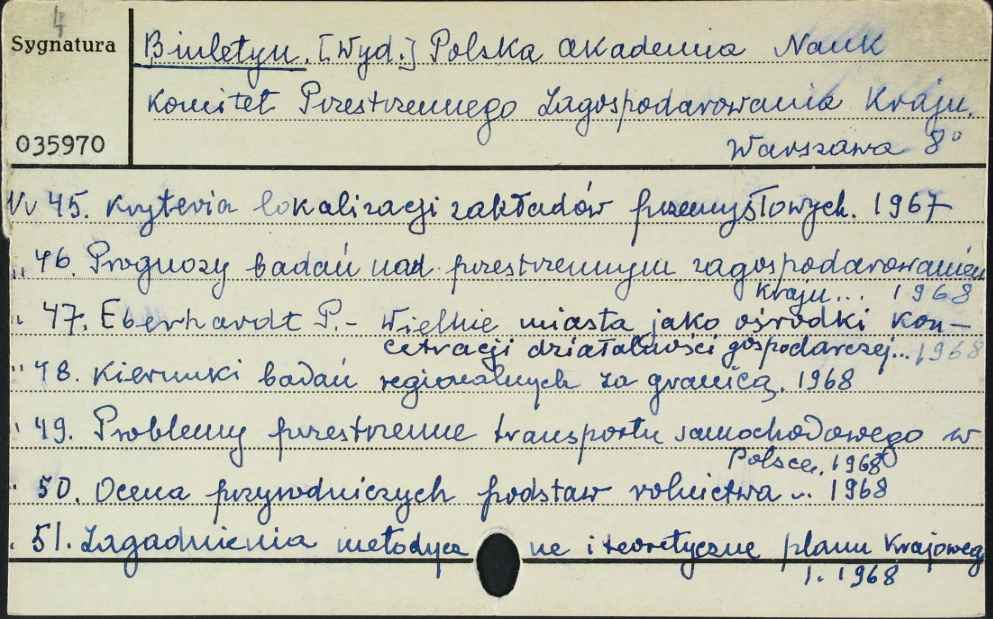 4
Sygnatura
035970
Biuletyn. [Wyd.] Polska Akademia Nauk
Komitet Przestrzennego Zagospodarowania Kraju.
Warszawa 8°
Nr 45. Kryteria lokalizacji zakładów przemysłowych. 1967
" 46. Prognozy badań nad przestrzennym zagospodarowaniem
Kraju... 1968
" 47. Eberhardt P. - Wielkie miasta jako ośrodki kon-
cetracji działalności gospodarczej... 1968
" 48. Kierunki badań regionalnych za granicą. 1968
" 49. Problemy przestrzenne transportu samochodowego w
Polsce. 1968
" 50. Ocena przyrodniczych podstaw rolnictwa... 1968
" 51. Zagadnienia metodycz ne i teoretyczne planu Krajoweg
1. 1968